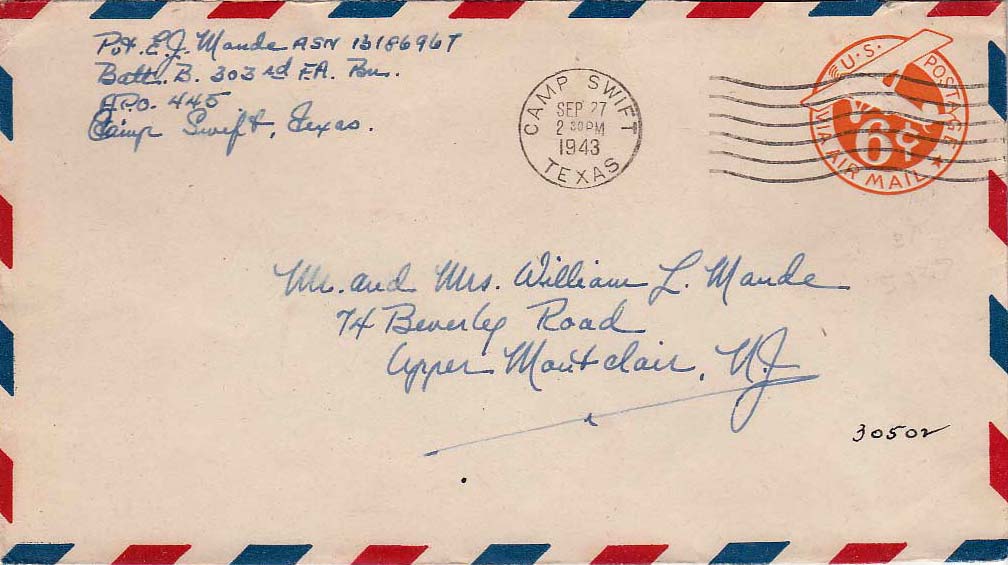 Pvt. E.J. Maude ASN 13186967
Batt. B. 303rd F.A. Bn.
A.P.O. 445
Camp Swift, Texas.
CAMP SWIFT
SEP 27
2 30 PM
1943
TEXAS
U.S. POSTAGE
6¢
VIA AIR MAIL
Mr. and Mrs. William L. Maude
74 Beverley Road
Upper Montclair, N.J.
30502